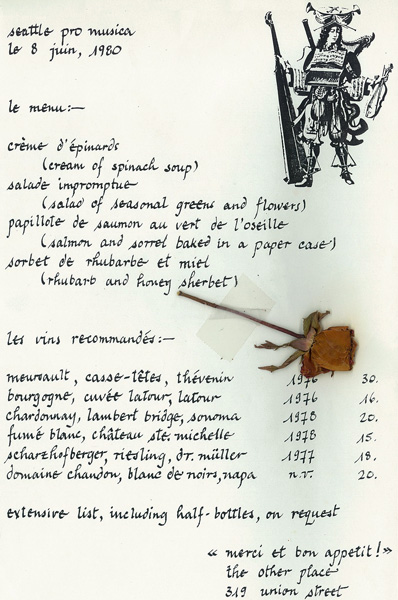 seattle pro musica
le 8 juin, 1980
le menu:—
crème d'épinards
(cream of spinach soup)
salade impromptue
(salad of seasonal greens and flowers)
papillote de saumon au vert de l'oseille
(salmon and sorrel baked in a paper case)
sorbet de rhubarbe et miel
(rhubarb and honey sherbet)
les vins recommandés:—
meursault, casse-têtes, thévenin 1976 30.
bourgogne, cuvée latour, latour 1976 16.
chardonnay, lambert bridge, sonoma 1978 20.
fumé blanc, château ste. michelle 1978 15.
scharzhofberger, riesling, dr. müller 1977 18.
domaine chandon, blanc de noirs, napa n.v. 20.
extensive list, including half-bottles, on request
« merci et bon appetit! »
the other place
319 union street